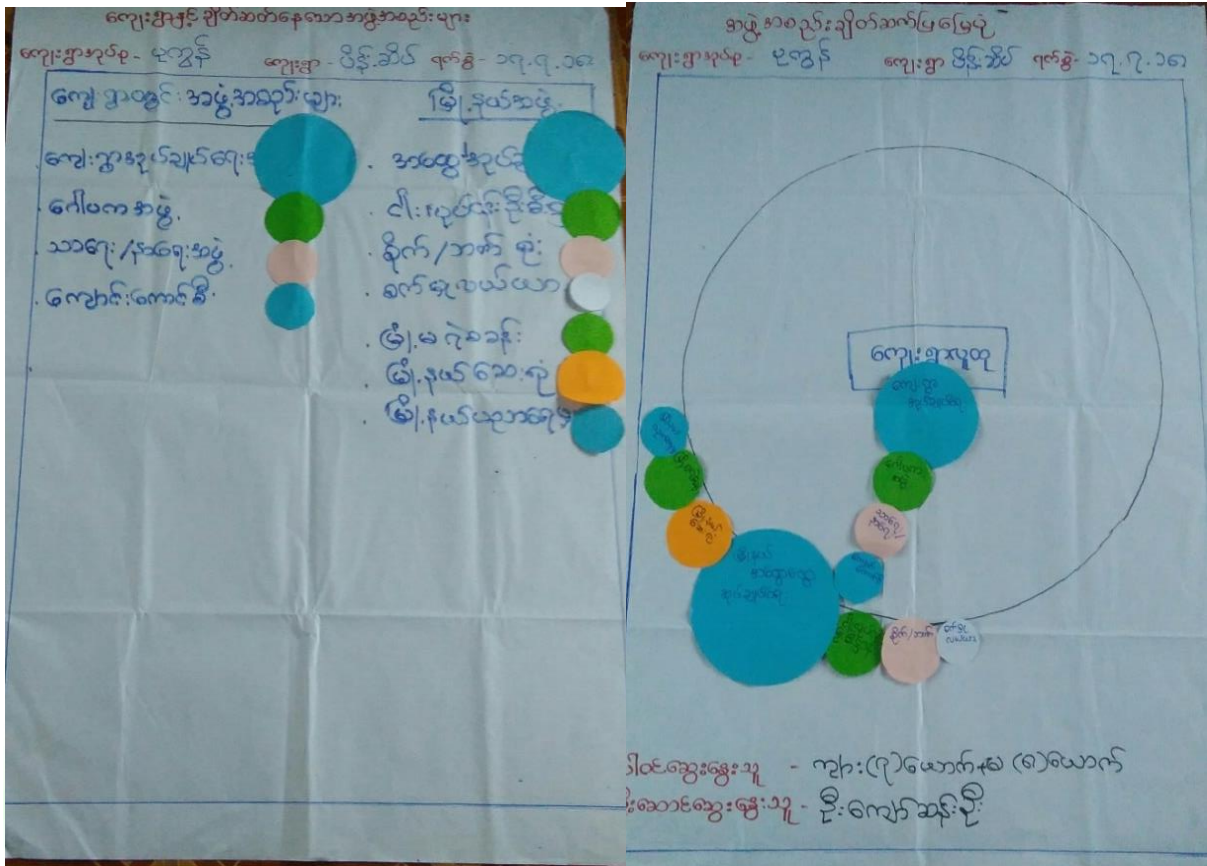 ကျေးရွာနှင့် ချိတ်ဆက်နေသောအဖွဲ့အစည်းများ
ကျေးရွာအုပ်စု - မုကွန် ကျေးရွာ - ပိန္နဲဆိပ် ရက်စွဲ - ၁၇.၇.၁၈
ကျေးရွာတွင်းအဖွဲ့အစည်းများ
ကျေးရွာအုပ်ချုပ်ရေး
ဂေါပကအဖွဲ့
သာရေး/နာရေးအဖွဲ့
ကျောင်းကောင်စီ
မြို့နယ်အဖွဲ့
အထွေအုပ်
ငါးလုပ်ငန်းဦးစီး
စိုက်/ဘဏ် ရုံး
စက်မှုလယ်ယာ
မြို့မရဲစခန်း
မြို့နယ်ဆေးရုံ
မြို့နယ်ပညာရေး
အဖွဲ့အစည်းချိတ်ဆက်ပြမြေပုံ
ကျေးရွာအုပ်စု - မုကွန် ကျေးရွာ ပိန္နဲဆိပ် ရက်စွဲ - ၁၇.၇.၁၈
ကျေးရွာလူထု
ကျေးရွာ
အုပ်ချုပ်ရေး
ဂေါပက
အဖွဲ့
မြို့နယ်
အထွေထွေ
အုပ်ချုပ်ရေး
စိုက်/ဘဏ်
စက်မှု
လယ်ယာ
ပါဝင်ဆွေးနွေးသူ - ကျား(၇)ယောက်+မ (၈)ယောက်
ဦးဆောင်ဆွေးနွေးသူ - ဦးကျော်ဆန်းဦး